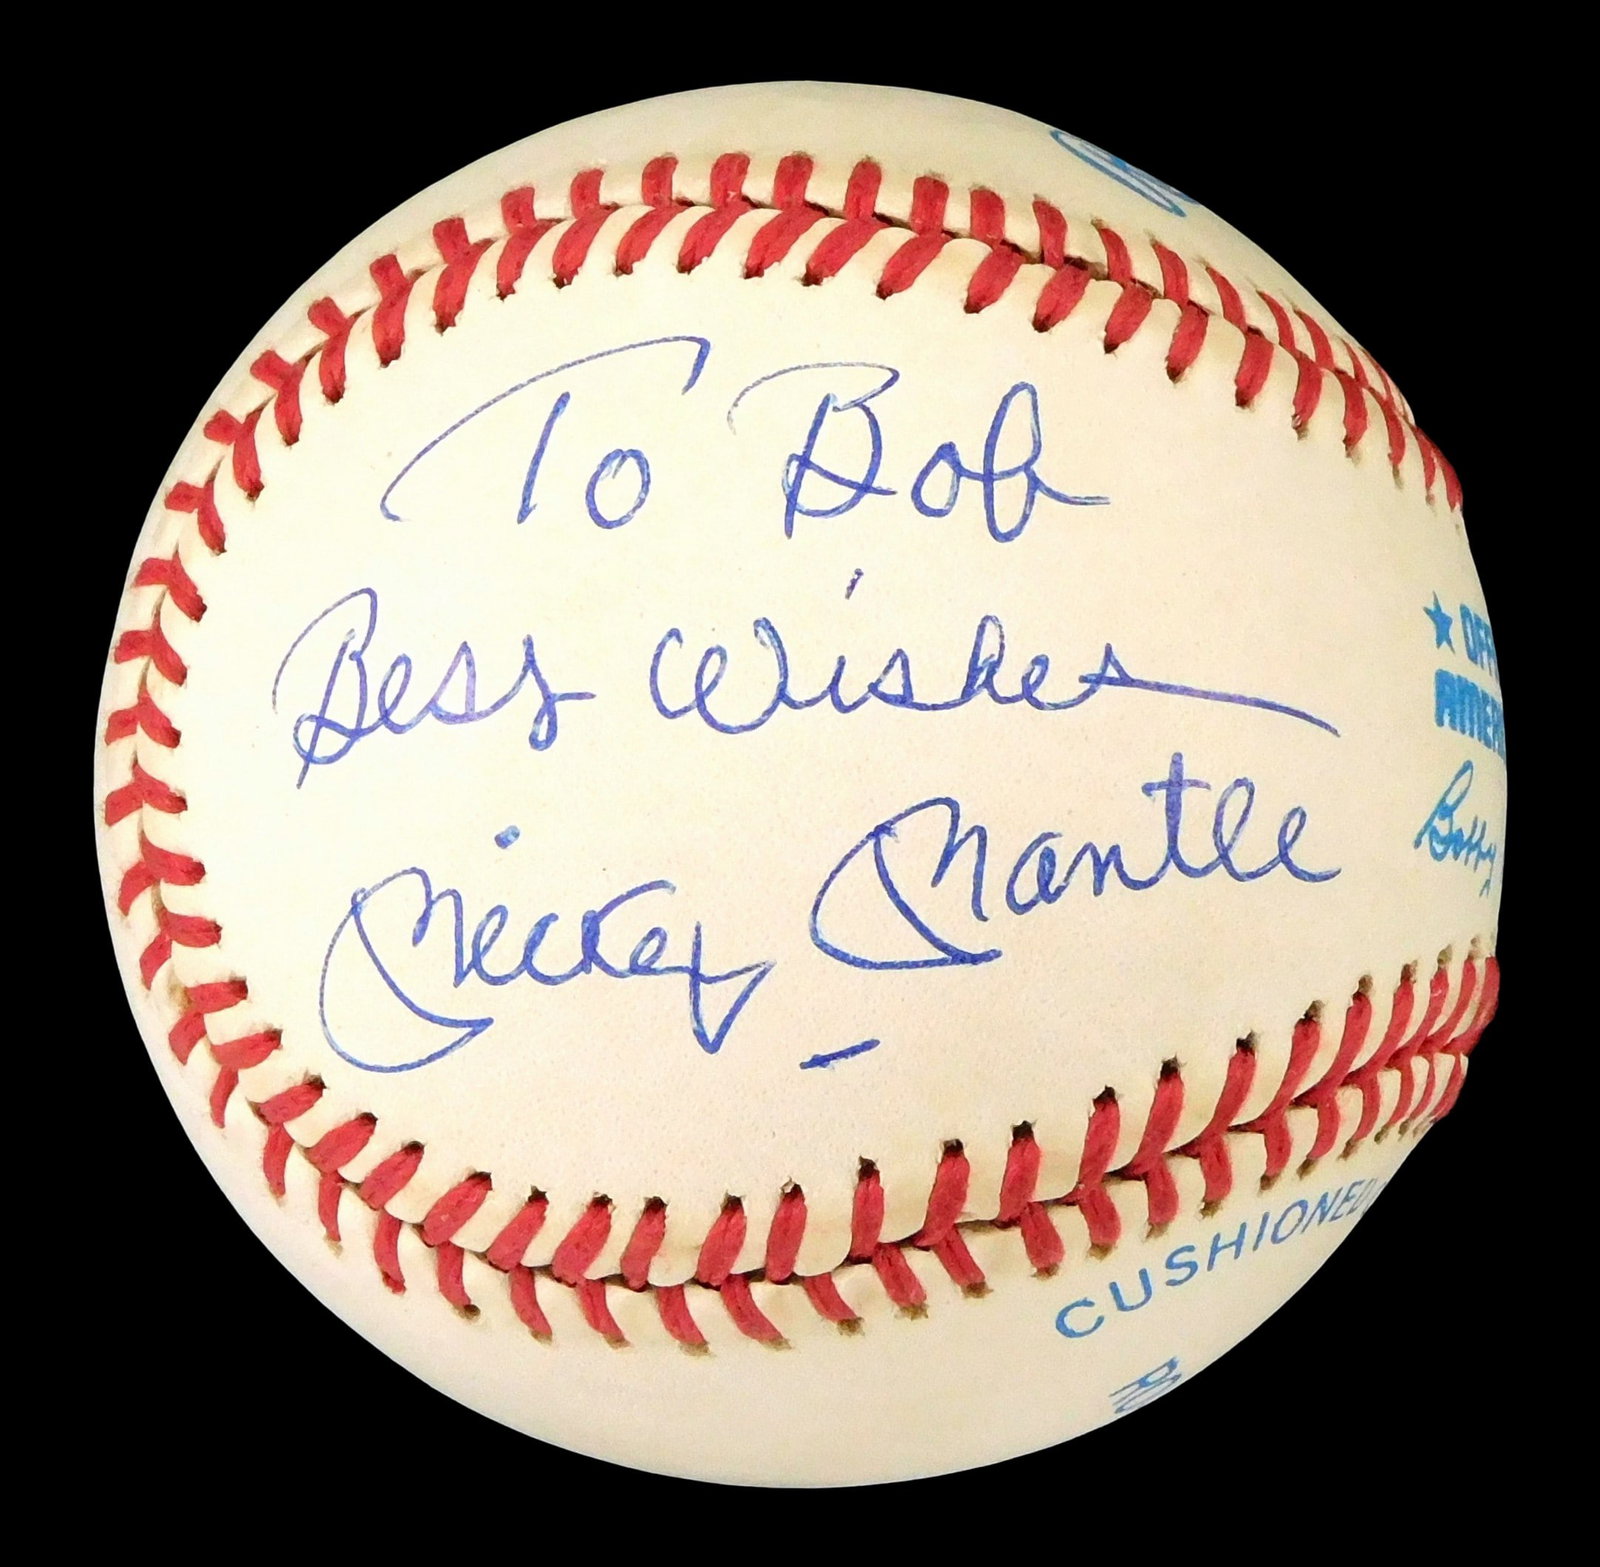 To Bob
Best Wishes
Mickey Mantle
★ OFFI
AMERI
Bobby
CUSHIONED
RO